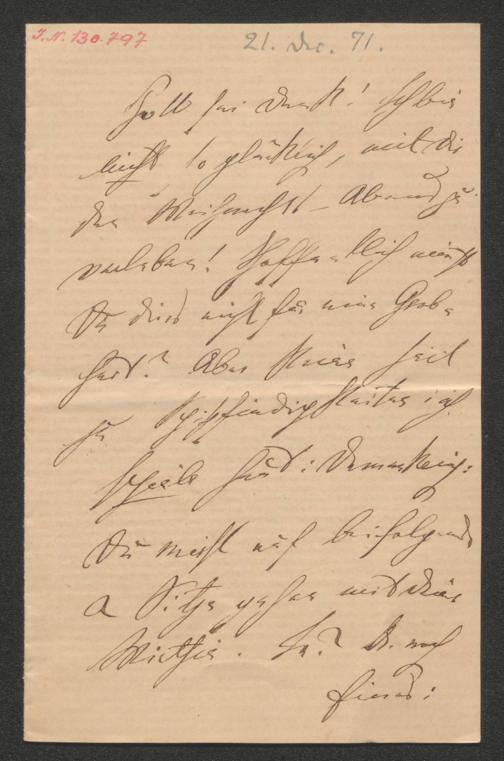 J.N. 130.797
21. Dec. 71.
Gott sei Dank! Ich bin
nicht so glücklich, mit Dir
den Weihnachts-Abend zu
verleben! Hoffentlich nimmst
Du dies nicht für eine Grob-
heit? Aber keine Zeit
zu Spitzfindigkeiten; ich
heut:
Du mußt auf beifolgende
2 Sitze gehen mit Deiner